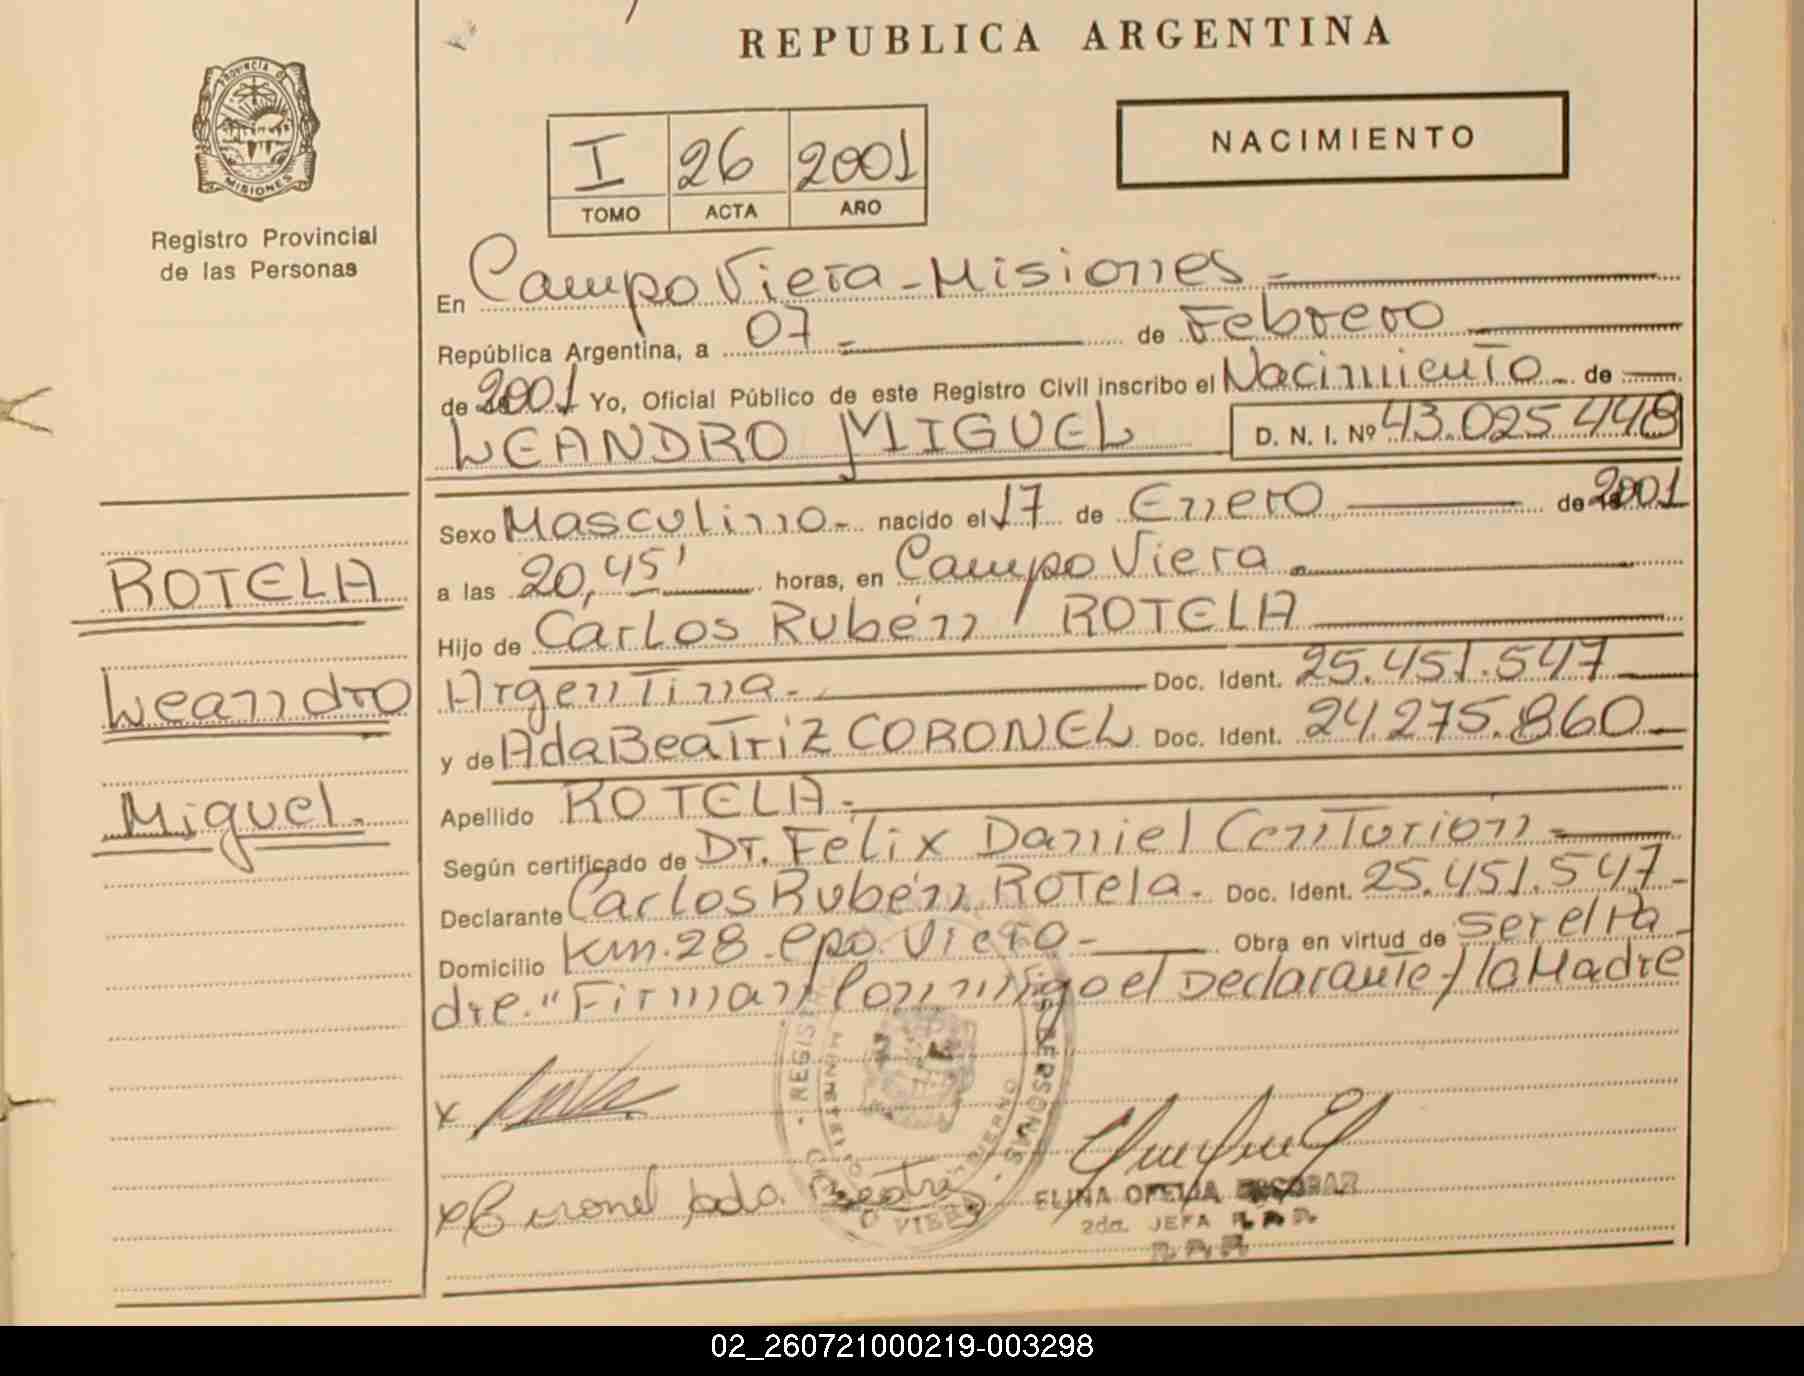 REPUBLICA ARGENTINA
PROVINCIA DE
MISIONES
Registro Provincial
de las Personas
I 26 2001
TOMO ACTA AÑO
NACIMIENTO
En Campo Viera - Misiones -
República Argentina, a 07 - de Febrero
de 2001 Yo, Oficial Público de este Registro Civil inscribo el Nacimiento - de
LEANDRO MIGUEL D. N. I. Nº 43.025.448
Sexo Masculino - nacido el 17 de Enero de 2001
a las 20,45' horas, en Campo Viera -
Hijo de Carlos Rubén ROTELA
Argentina - Doc. Ident. 25.451.547
y de Ada Beatriz CORONEL Doc. Ident. 24.275.860 -
Apellido ROTELA -
Según certificado de Dr. Felix Daniel Centurión -
Declarante Carlos Rubén Rotela - Doc. Ident. 25.451.547 -
Domicilio Km. 28 - Cpo. Viera - Obra en virtud de ser el Pa-
dre. " Firman Conmigo el Declarante y la Madre
ROTELA
Leandro
Miguel.
x
x Coronel Ada Beatriz
REGISTRO DE LAS PERSONAS
MINISTERIO GOBIERNO
CAMPO VIERA
ELINA OFELIA ESCOBAR
2da. JEFA R. P. P.
R. P. P.
02_260721000219-003298